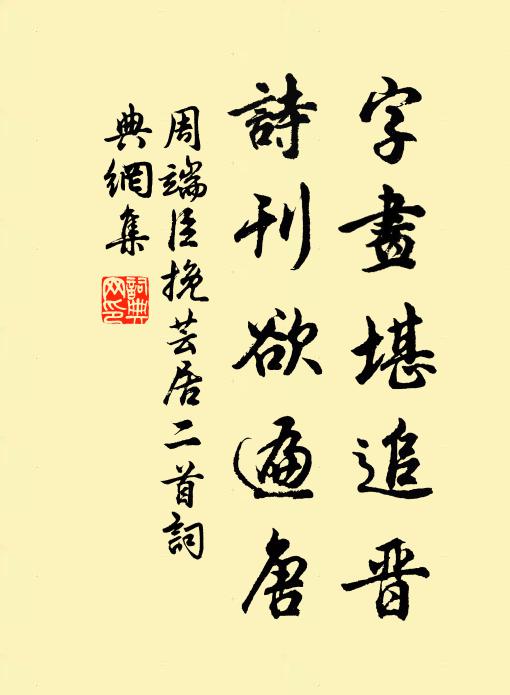 字畫堪追晉
詩刊欲遍唐
周端臣挽芸居二首詞
典網集
詞典網印